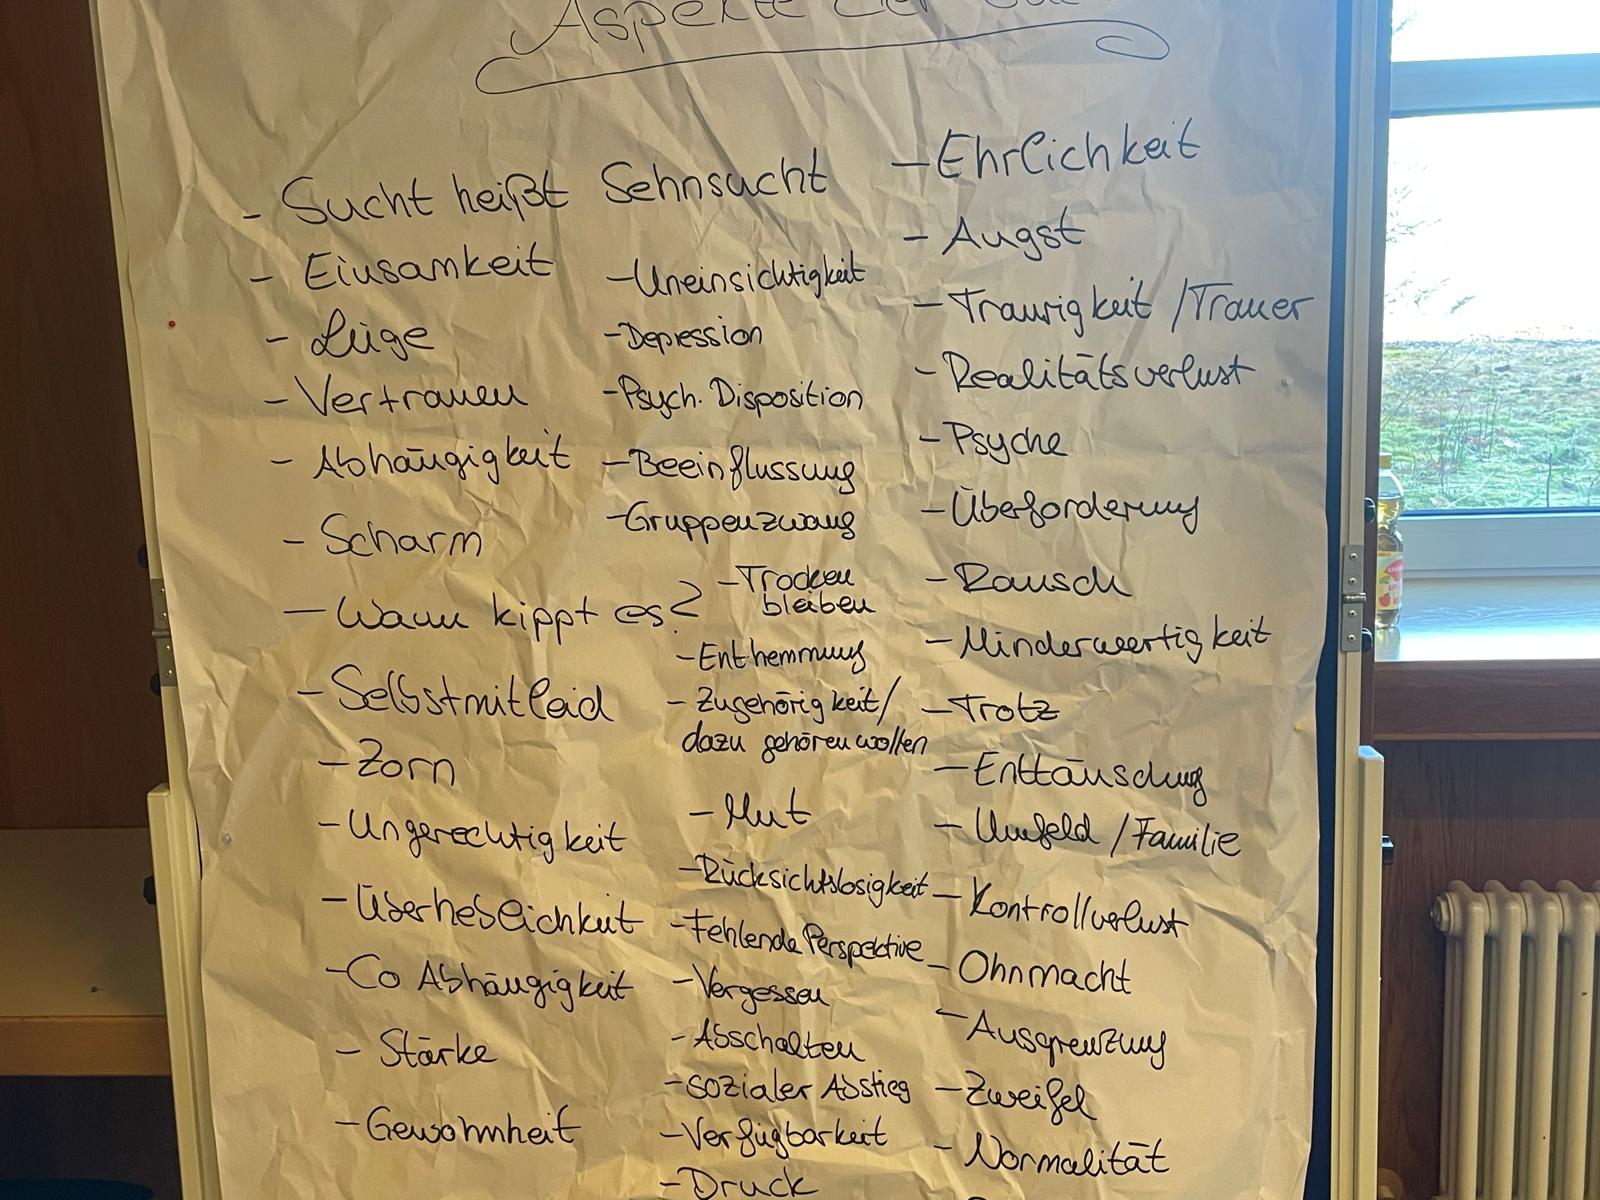 Aspekte der
- Sucht heißt Sehnsucht
- Einsamkeit
- Lüge
- Vertrauen
- Abhängigkeit
- Scharm
- Wann kippt es?
- Selbstmitleid
- Zorn
- Ungerechtigkeit
- Überheblichkeit
- Co Abhängigkeit
- Stärke
- Gewohnheit
- Uneinsichtigkeit
- Depression
- Psych. Disposition
- Beeinflussung
- Gruppenzwang
- Trocken
bleiben
- Enthemmung
- Zugehörigkeit/
dazu gehören wollen
- Mut
- Rücksichtslosigkeit
- Fehlende Perspektive
- Vergessen
- Abschalten
- sozialer Abstieg
- Verfügbarkeit
- Druck
- Ehrlichkeit
- Angst
- Traurigkeit / Trauer
- Realitätsverlust
- Psyche
- Überforderung
- Rausch
- Minderwertigkeit
- Trotz
- Enttäuschung
- Umfeld / Familie
- Kontrollverlust
- Ohnmacht
- Ausgrenzung
- Zweifel
- Normalität